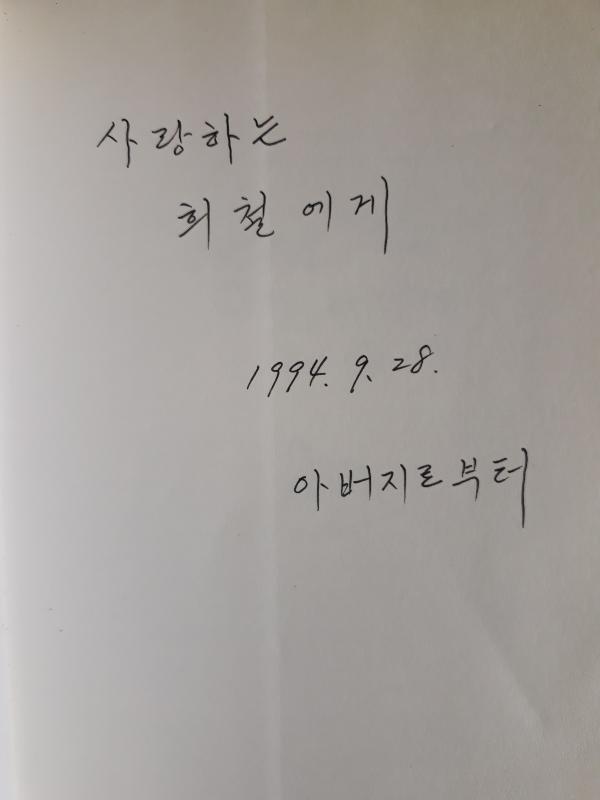 사랑하는
희철에게
1994. 9. 28.
아버지로부터